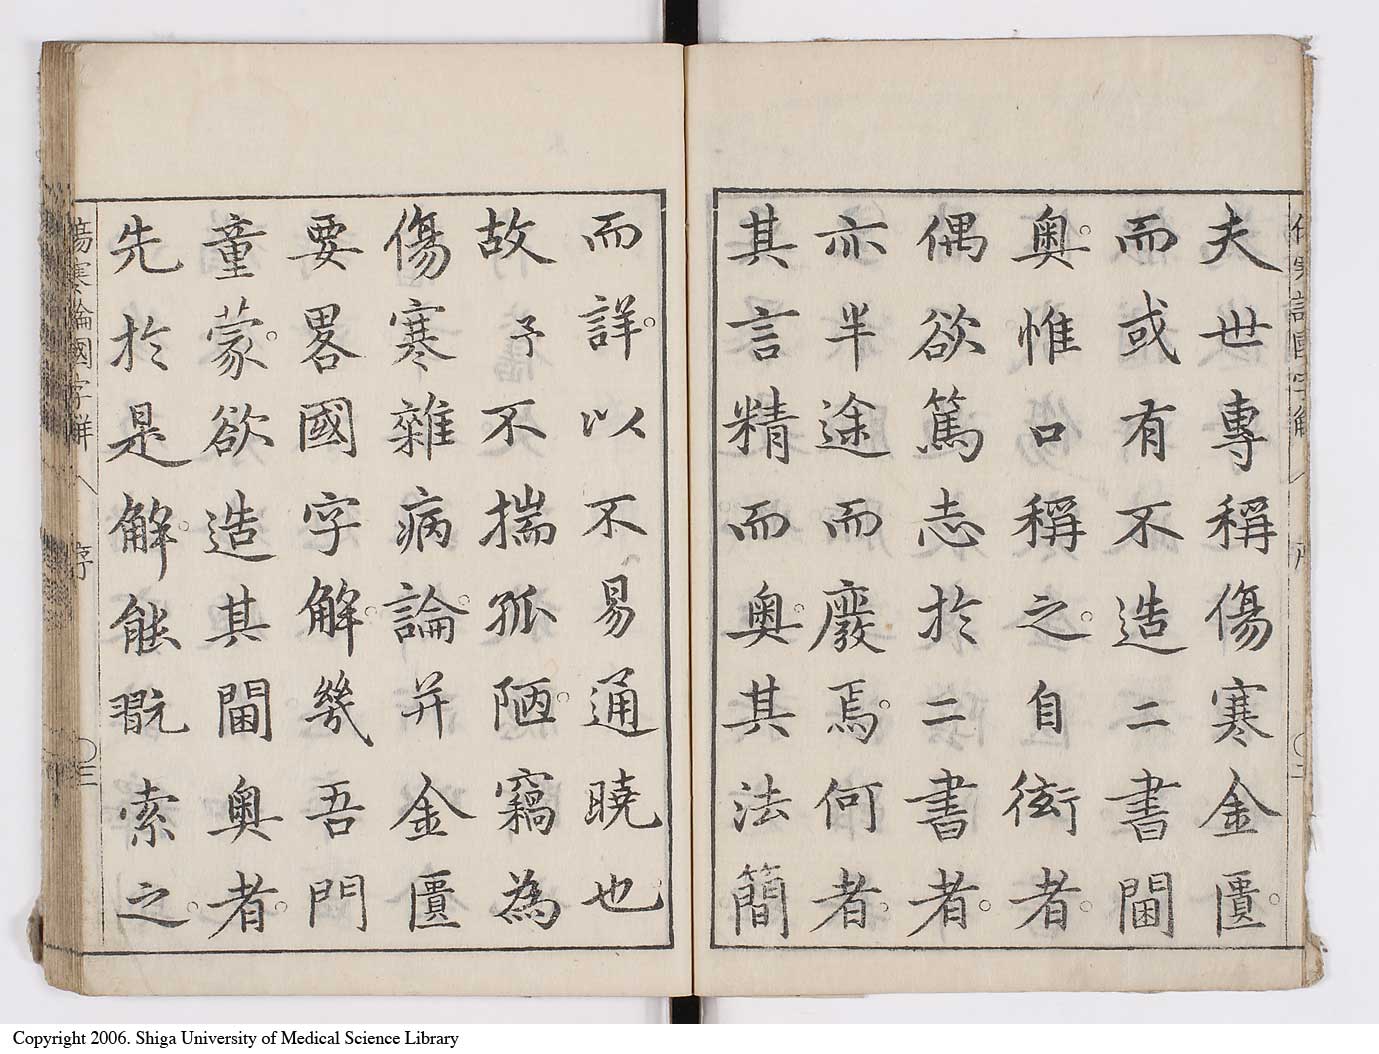 傷寒論國字解 序 〇二
夫世專稱傷寒金匱。
而或有不造二書閫
奧。惟口稱之。自衒者。
偶欲篤志於二書者。
亦半途而廢焉。何者。
其言精而奧。其法簡
而詳。以不易通曉也
故予不揣孤陋。竊為
傷寒雜病論。并金匱
要畧國字解。幾吾門
童蒙。欲造其閫奧者。
先於是解。能翫索之。
傷寒論國字解 序 〇三
Copyright 2006. Shiga University of Medical Science Library